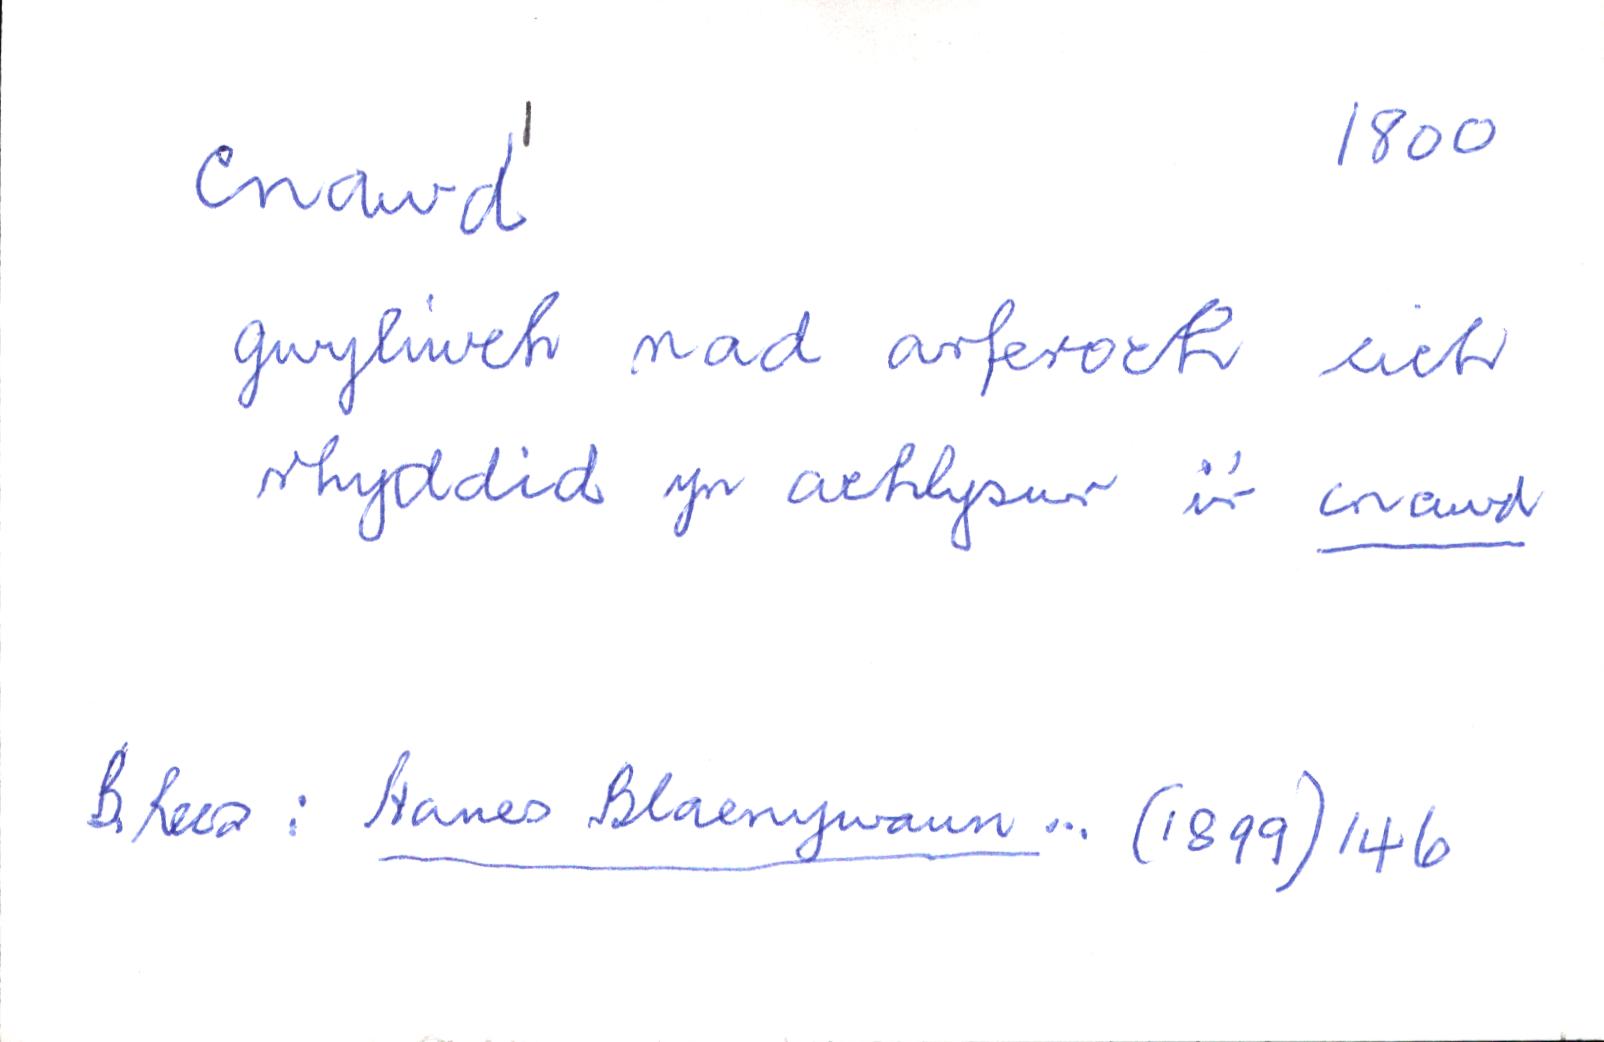 cnawd¹ 1800
gwyliwch nad arferoch eich
rhyddid yn achlysur i'r cnawd
B. Rees : Hanes Blaenywaun ... (1899) 146